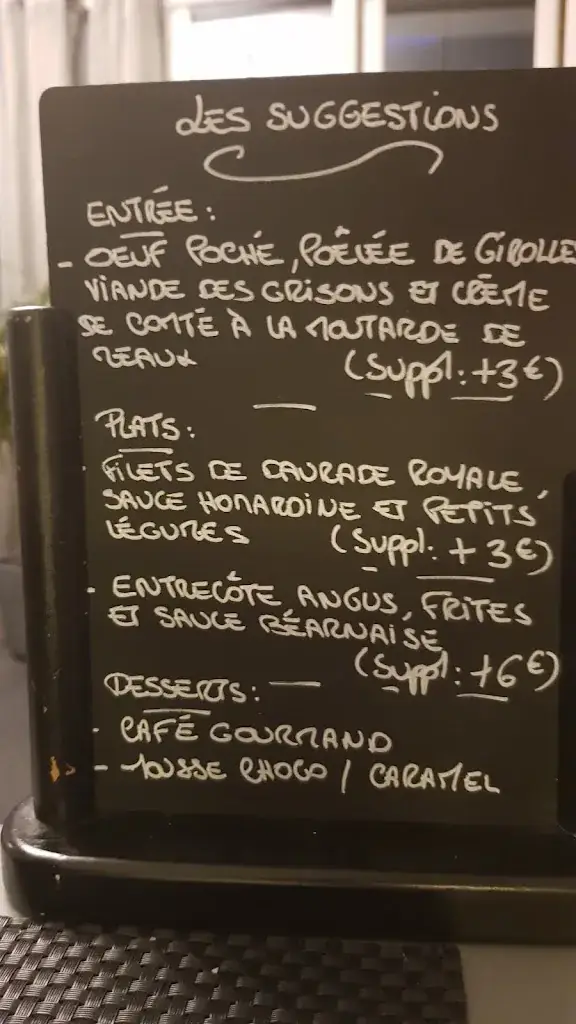 LES SUGGESTIONS
ENTRÉE :
- OEUF POCHÉ, POÊLÉE DE GIROLLE
VIANDE DES GRISONS ET CRÈME
DE COMTÉ À LA MOUTARDE DE
MEAUX (Suppl: +3€)
PLATS :
- FILETS DE DAURADE ROYALE,
SAUCE HOMARDINE ET PETITS
LÉGUMES (Suppl: +3€)
- ENTRECÔTE ANGUS, FRITES
ET SAUCE BÉARNAISE
(Suppl: +6€)
DESSERTS :
- CAFÉ GOURMAND
- MOUSSE CHOCO / CARAMEL